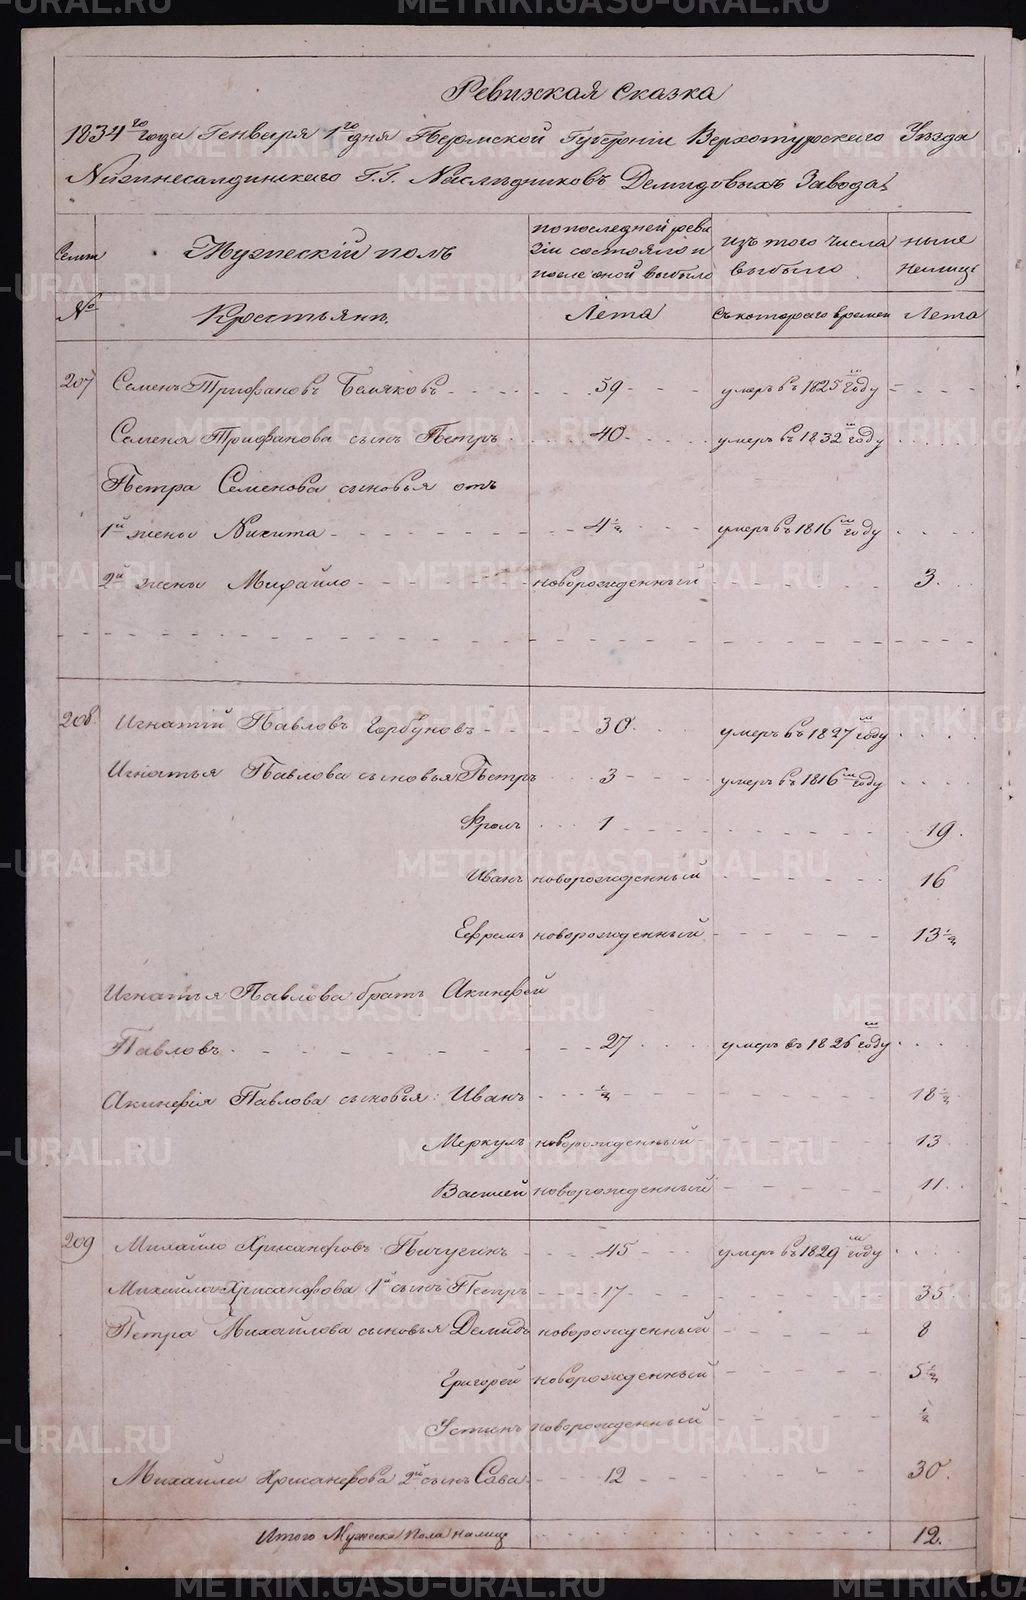 Ревижская сказка
1834го года Генваря 1го дня Пермской Губернiи Верхотурскаго Уезда
Нижнесалдинскаго Г.Г. Наследниковъ Демидовыхъ Завода
Семьи
Мужескiй полъ
по последней реви
зiи состояло и
после оной выбыло
изъ того числа
выбыло
ныне
налицо
№
Крестьянъ
Лета
Съ котораго времени
Лета
207 Семенъ Трифановъ Беляковъ 59 умеръ въ 1825м году
Семена Трифанова сынъ Петръ 40 умеръ въ 1832м году
Петра Семенова сыновья отъ
1й жены Никита 4 ½ умеръ въ 1816м году
2й жены Михайло новорожденный 3
208 Игнатий Павловъ Горбуновъ 30 умеръ въ 1827м году
Игнатья Павлова сыновья Петръ 3 умеръ въ 1816м году
Фролъ 1 19
Иванъ новорожденный 16
Ефремъ новорожденный 13 ½
Игнатья Павлова братъ Акинфей
Павловъ 27 умеръ въ 1826м году
Акинфия Павлова сыновья: Иванъ ½ 18 ½
Меркулъ новорожденный 13
Василей новорожденный 11
209 Михайло Хрисанфовъ Пичугинъ 45 умеръ въ 1829м году
Михайла Хрисанфова 1й сынъ Петръ 17 35
Петра Михайлова сыновья Демидъ новорожденный 8
Григорей новорожденный 5 ½
Устинъ новорожденный ½
Михайла Хрисанфова 2й сынъ Сава 12 30
Итого Мужеска Пола налицо 12
METRIKI.GASO-URAL.RU